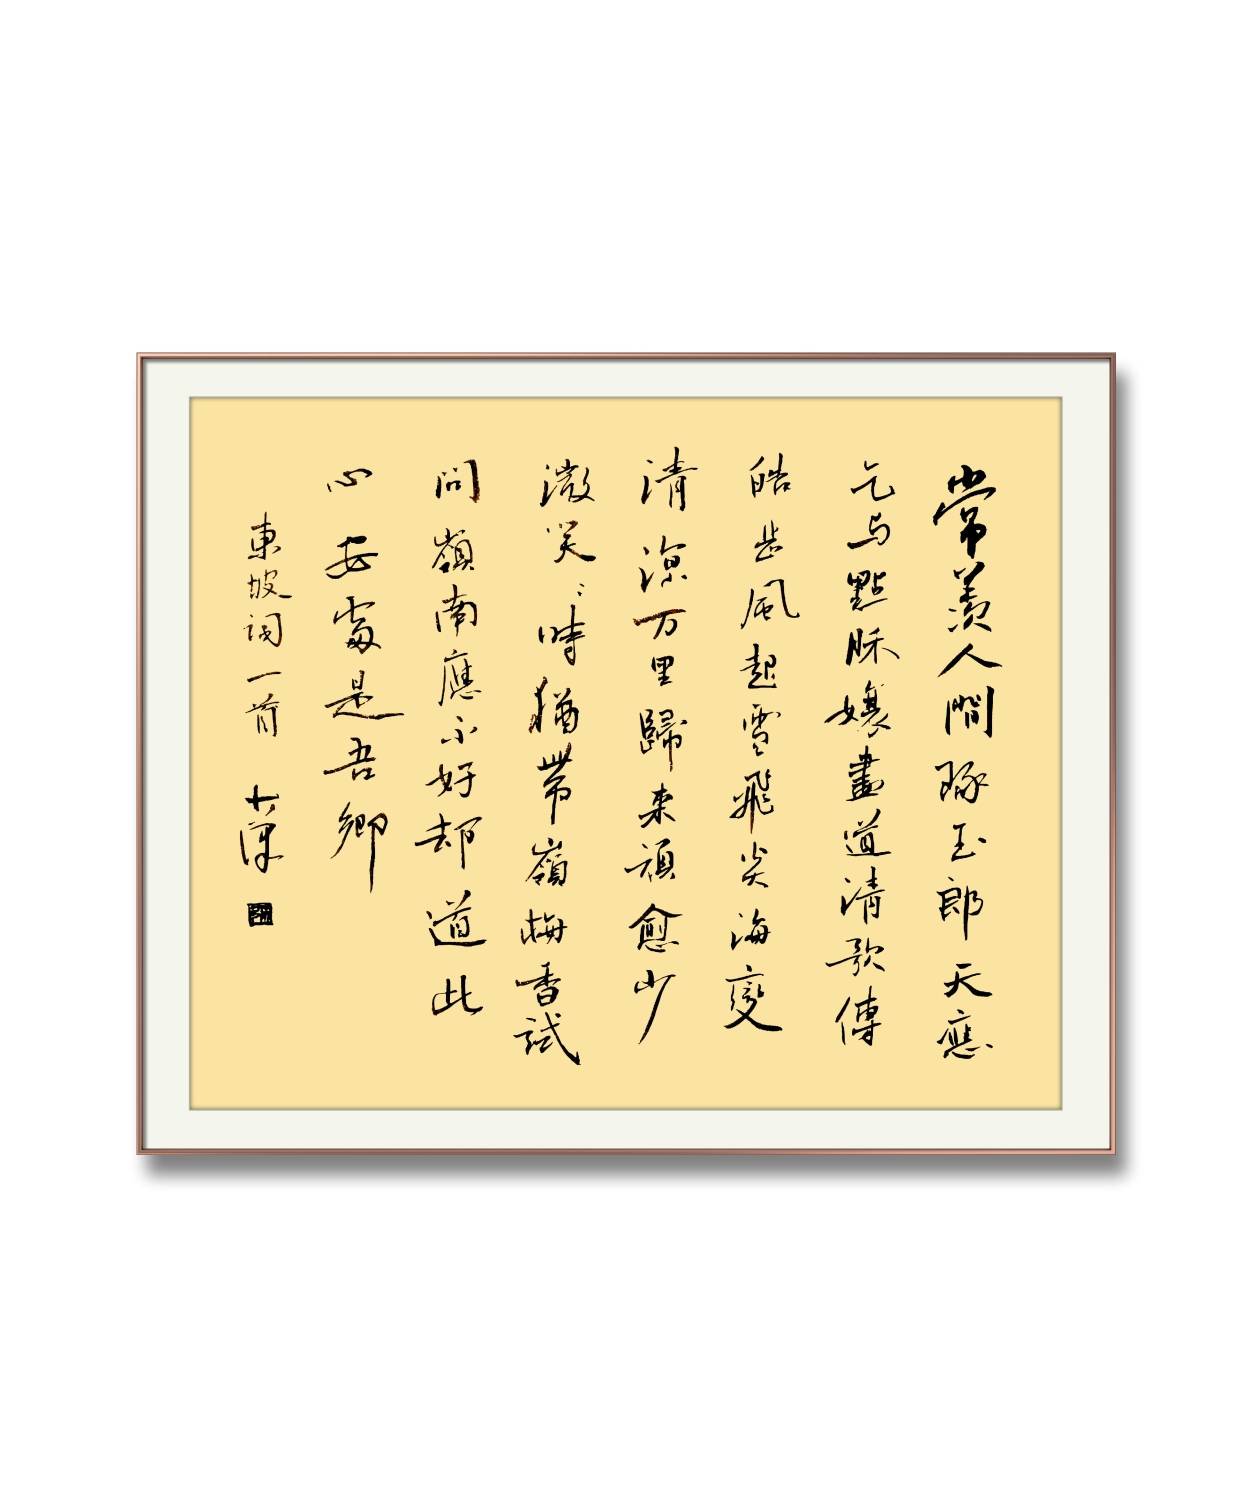 常羡人間琢玉郎天應
乞与點酥孃盡道清歌傳
皓齒風起雪飛炎海變
清涼万里歸来頑愈少
微笑〻時猶帶嶺梅香試
問嶺南應不好却道此
心安處是吾鄉
東坡词一首